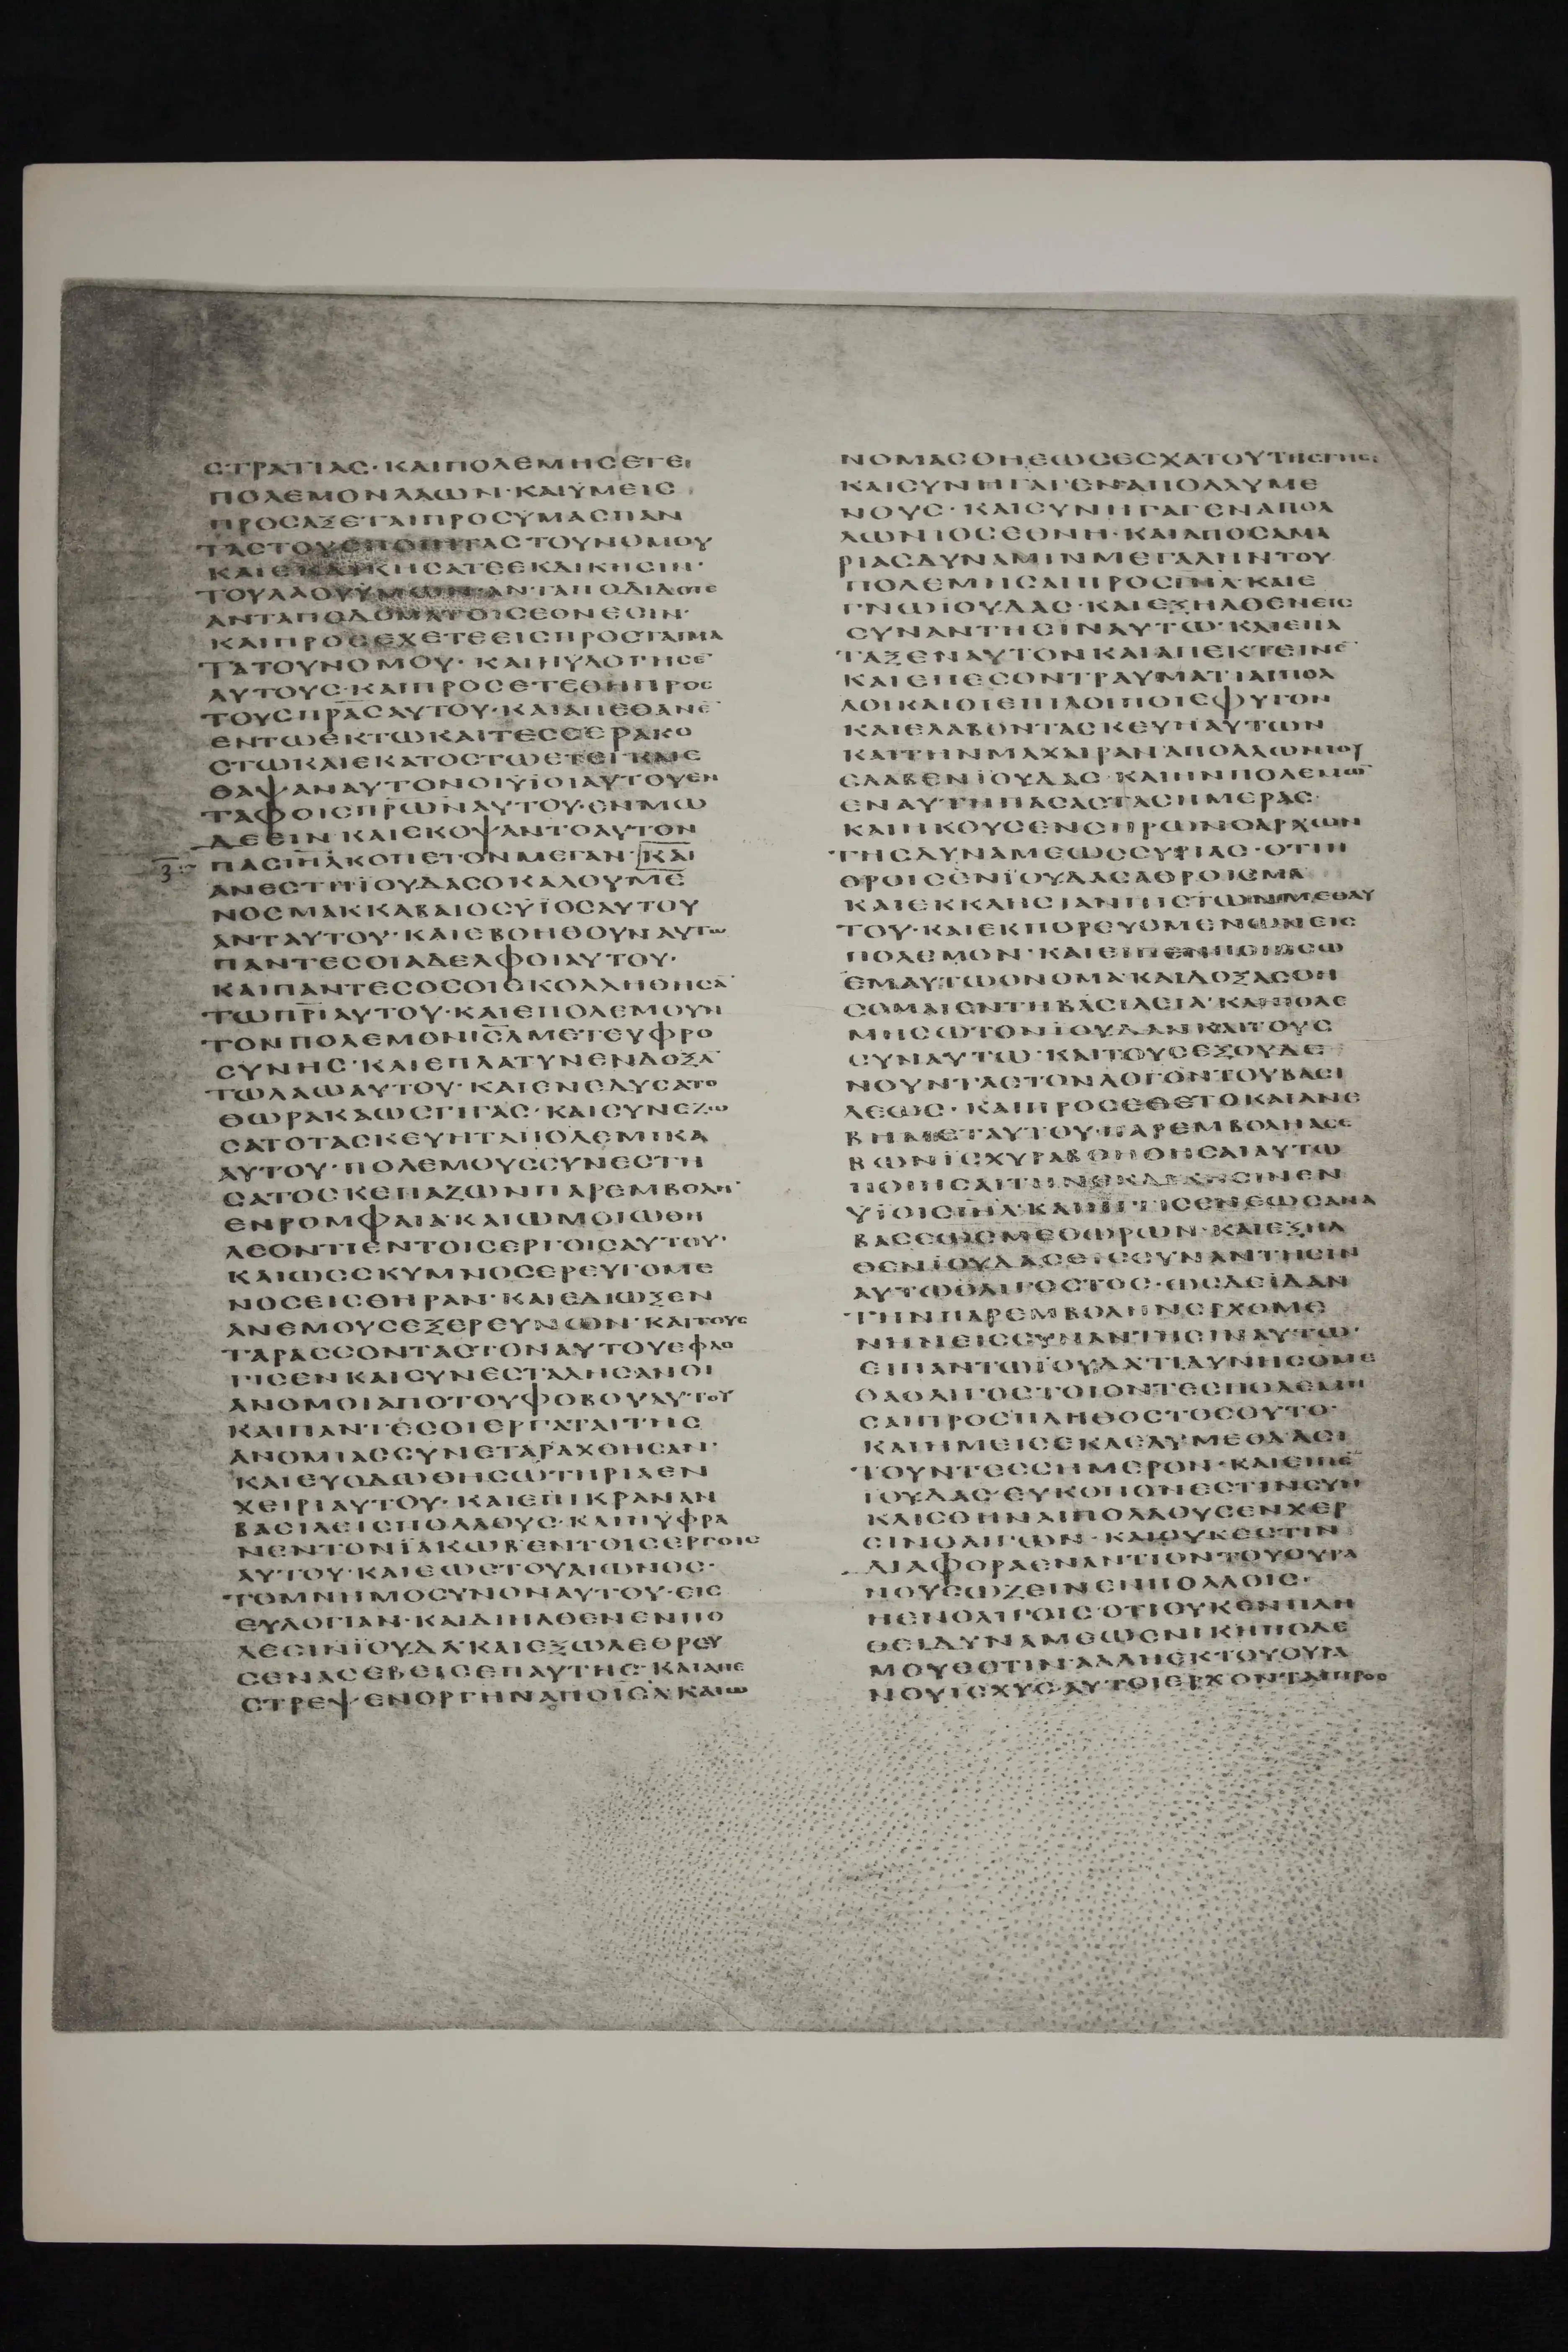 ϹΤΡΑΤΙΑϹ· ΚΑΙΠΟΛΕΜΗϹΕΤΕ
ΠΟΛΕΜΟΝΛΑΩΝ· ΚΑΙΫΜΕΙϹ
ΠΡΟϹΑΞΕΤΑΙΠΡΟϹΥΜΑϹΠΑΝ
ΤΑϹΤΟΥϹΠΟΙΗΤΑϹΤΟΥΝΟΜΟΥ
ΚΑΙΕΚΔΙΚΗϹΑΤΕΕΚΔΙΚΗϹΙΝ·
ΤΟΥΛΑΟΥΫΜΩΝ· ΑΝΤΑΠΟΔΙΔΟΤΕ
ΑΝΤΑΠΟΔΟΜΑΤΟΙϹΕΘΝΕϹΙΝ·
ΚΑΙΠΡΟϹΕΧΕΤΕΕΙϹΠΡΟϹΤΑΓΜΑ
ΤΑΤΟΥΝΟΜΟΥ· ΚΑΙΗΥΛΟΓΗϹΕ̄
ΑΥΤΟΥϹ· ΚΑΙΠΡΟϹΕΤΕΘΗΠΡΟϹ
ΤΟΥϹΠΡ̅Α̅Ϲ̅ΑΥΤΟΥ· ΚΑΙΑΠΕΘΑΝΕ̄
ΕΝΤΩΕΚΤΩΚΑΙΤΕϹϹΕΡΑΚΟ
ϹΤΩΚΑΙΕΚΑΤΟϹΤΩΕΤΕΙ· ΚΑΙΕ
ΘΑΨΑΝΑΥΤΟΝΟΙΫΙΟΙΑΥΤΟΥΕΝ
ΤΑΦΟΙϹΠΡ̅Ω̅Ν̅ΑΥΤΟΥ· ΕΝΜΩ
ΔΕΕΙΝ· ΚΑΙΕΚΟΨΑΝΤΟΑΥΤΟΝ
ΠΑϹΙΗ̅Λ̅ΚΟΠΕΤΟΝΜΕΓΑΝ· ΚΑΙ
ΑΝΕϹΤΗΪΟΥΔΑϹΟΚΑΛΟΥΜΕ
ΝΟϹΜΑΚΚΑΒΑΙΟϹΥΪΟϹΑΥΤΟΥ
ΑΝΤΑΥΤΟΥ· ΚΑΙΕΒΟΗΘΟΥΝΑΥΤΩ
ΠΑΝΤΕϹΟΙΑΔΕΛΦΟΙΑΥΤΟΥ·
ΚΑΙΠΑΝΤΕϹΟϹΟΙΕΚΟΛΛΗΘΗϹᾹ
ΤΩΠΡ̅Ι̅ΑΥΤΟΥ· ΚΑΙΕΠΟΛΕΜΟΥΝ
ΤΟΝΠΟΛΕΜΟΝΙϹ̅Λ̅ΜΕΤΕΥΦΡΟ
ϹΥΝΗϹ· ΚΑΙΕΠΛΑΤΥΝΕΝΔΟΞᾹ
ΤΩΛΑΩΑΥΤΟΥ· ΚΑΙΕΝΕΔΥϹΑΤΟ
ΘΩΡΑΚΑΩϹΓΙΓΑϹ· ΚΑΙϹΥΝΕΖΩ
ϹΑΤΟΤΑϹΚΕΥΗΤΑΠΟΛΕΜΙΚΑ
ΑΥΤΟΥ· ΠΟΛΕΜΟΥϹϹΥΝΕϹΤΗ
ϹΑΤΟϹΚΕΠΑΖΩΝΠΑΡΕΜΒΟΛΗ̄
ΕΝΡΟΜΦΑΙΑ· ΚΑΙΩΜΟΙΩΘΗ
ΛΕΟΝΤΙΕΝΤΟΙϹΕΡΓΟΙϹΑΥΤΟΥ·
ΚΑΙΩϹϹΚΥΜΝΟϹΕΡΕΥΓΟΜΕ
ΝΟϹΕΙϹΘΗΡΑΝ· ΚΑΙΕΔΙΩΞΕΝ
ΑΝΕΜΟΥϹΕΞΕΡΕΥΝΩΝ· ΚΑΙΤΟΥϹ
ΤΑΡΑϹϹΟΝΤΑϹΤΟΝΑΥΤΟΥΕΦΛΟ
ΓΙϹΕΝΚΑΙϹΥΝΕϹΤΑΛΗϹΑΝΟΙ
ΑΝΟΜΟΙΑΠΟΤΟΥΦΟΒΟΥΑΥΤΟΥ
ΚΑΙΠΑΝΤΕϹΟΙΕΡΓΑΤΑΙΤΗϹ
ΑΝΟΜΙΑϹϹΥΝΕΤΑΡΑΧΘΗϹΑΝ·
ΚΑΙΕΥΟΔΩΘΗϹΩΤΗΡΙΑΕΝ
ΧΕΙΡΙΑΥΤΟΥ· ΚΑΙΕΠΙΚΡΑΝΑΝ
ΒΑϹΙΛΕΙϹΠΟΛΛΟΥϹ· ΚΑΙΗΥΦΡΑ
ΝΕΝΤΟΝΪΑΚΩΒΕΝΤΟΙϹΕΡΓΟΙϹ
ΑΥΤΟΥ· ΚΑΙΕΩϹΤΟΥΑΙΩΝΟϹ·
ΤΟΜΝΗΜΟϹΥΝΟΝΑΥΤΟΥ· ΕΙϹ
ΕΥΛΟΓΙΑΝ· ΚΑΙΔΙΗΛΘΕΝΕΝΠΟ
ΛΕϹΙΝΪΟΥΔΑ· ΚΑΙΕΞΩΛΕΘΡΕΥ
ϹΕΝΑϹΕΒΕΙϹΕΠΑΥΤΗϹ· ΚΑΙΑΠΕ
ϹΤΡΕΨΕΝΟΡΓΗΝΑΠΟΙϹ̅Λ̅· ΚΑΙΩ
ΝΟΜΑϹΘΗΕΩϹΕϹΧΑΤΟΥΤΗϹΓΗϹ·
ΚΑΙϹΥΝΗΓΑΓΕΝΑΠΟΛΛΥΜΕ
ΝΟΥϹ· ΚΑΙϹΥΝΗΓΑΓΕΝΑΠΟΛ
ΛΩΝΙΟϹΕΘΝΗ· ΚΑΙΑΠΟϹΑΜΑ
ΡΙΑϹΔΥΝΑΜΙΝΜΕΓΑΛΗΝΤΟΥ
ΠΟΛΕΜΗϹΑΙΠΡΟϹΙΗ̅Λ̅· ΚΑΙΕ
ΓΝΩΪΟΥΔΑϹ· ΚΑΙΕΞΗΛΘΕΝΕΙϹ
ϹΥΝΑΝΤΗϹΙΝΑΥΤΩ· ΚΑΙΕΠΑ
ΤΑΞΕΝΑΥΤΟΝΚΑΙΑΠΕΚΤΕΙΝΕ̄
ΚΑΙΕΠΕϹΟΝΤΡΑΥΜΑΤΙΑΙΠΟΛ
ΛΟΙΚΑΙΟΙΕΠΙΛΟΙΠΟΙΕΦΥΓΟΝ
ΚΑΙΕΛΑΒΟΝΤΑϹΚΕΥΗΑΥΤΩΝ
ΚΑΙΤΗΝΜΑΧΑΙΡΑΝΑΠΟΛΛΩΝΙΟΥ
ΕΛΑΒΕΝΪΟΥΔΑϹ· ΚΑΙΗΝΠΟΛΕΜΩ̄
ΕΝΑΥΤΗΠΑϹΑϹΤΑϹΗΜΕΡΑϹ·
ΚΑΙΗΚΟΥϹΕΝϹΗΡΩΝΟΑΡΧΩΝ
ΤΗϹΔΥΝΑΜΕΩϹϹΥΡΙΑϹ· ΟΤΙΗ
ΘΡΟΙϹΕΝΪΟΥΔΑϹΑΘΡΟΙϹΜΑ
ΚΑΙΕΚΚΛΗϹΙΑΝΠΙϹΤΩΝΜΕΘΑΥ
ΤΟΥ· ΚΑΙΕΚΠΟΡΕΥΟΜΕΝΩΝΕΙϹ
ΠΟΛΕΜΟΝ· ΚΑΙΕΙΠΕΝΠΟΙΗϹΩ
ΕΜΑΥΤΩΟΝΟΜΑ· ΚΑΙΔΟΞΑϹΘΗ
ϹΟΜΑΙΕΝΤΗΒΑϹΙΛΕΙΑ· ΚΑΙΠΟΛΕ
ΜΗϹΩΤΟΝΪΟΥΔΑΝΚΑΙΤΟΥϹ
ϹΥΝΑΥΤΩ· ΚΑΙΤΟΥϹΕΞΟΥΔΕ
ΝΟΥΝΤΑϹΤΟΝΛΟΓΟΝΤΟΥΒΑϹΙ
ΛΕΩϹ· ΚΑΙΠΡΟϹΕΘΕΤΟΚΑΙΑΝΕ
ΒΗΜΕΤΑΥΤΟΥ· ΠΑΡΕΜΒΟΛΗΑϹΕ
ΒΩΝΙϹΧΥΡΑΒΟΗΘΗϹΑΙΑΥΤΩ
ΠΟΙΗϹΑΙΤΗΝΕΚΔΙΚΗϹΙΝΕΝ
ΥΪΟΙϹΙΗ̅Λ̅· ΚΑΙΗΓΓΙϹΕΝΕΩϹΑΝΑ
ΒΑϹΕΩϹΜΕΘΩΡΩΝ· ΚΑΙΕΞΗΛ
ΘΕΝΪΟΥΔΑϹΕΙϹϹΥΝΑΝΤΗϹΙΝ
ΑΥΤΩΟΛΙΓΟϹΤΟϹ· ΩϹΔΕΙΔΑΝ
ΤΗΝΠΑΡΕΜΒΟΛΗΝΕΡΧΟΜΕ
ΝΗΝΕΙϹϹΥΝΑΝΤΗϹΙΝΑΥΤΩ·
ΕΙΠΑΝΤΩΪΟΥΔΑΤΙΔΥΝΗϹΟΜΕ
ΘΑΟΛΙΓΟϹΤΟΙΟΝΤΕϹΠΟΛΕΜΗ
ϹΑΙΠΡΟϹΠΛΗΘΟϹΤΟϹΟΥΤΟ·
ΚΑΙΗΜΕΙϹΕΚΛΕΛΥΜΕΘΑΑϹΙ
ΤΟΥΝΤΕϹϹΗΜΕΡΟΝ· ΚΑΙΕΙΠΕ̄
ΪΟΥΔΑϹ· ΕΥΚΟΠΟΝΕϹΤΙΝϹΥΝ
ΚΛΙϹΘΗΝΑΙΠΟΛΛΟΥϹΕΝΧΕΡ
ϹΙΝΟΛΙΓΩΝ· ΚΑΙΟΥΚΕϹΤΙΝ
ΔΙΑΦΟΡΑΕΝΑΝΤΙΟΝΤΟΥΟΥΡΑ
ΝΟΥϹΩΖΕΙΝΕΝΠΟΛΛΟΙϹ·
ΗΕΝΟΛΙΓΟΙϹ· ΟΤΙΟΥΚΕΝΠΛΗ
ΘΕΙΔΥΝΑΜΕΩϹΝΙΚΗΠΟΛΕ
ΜΟΥΕϹΤΙΝ· ΑΛΛΗΕΚΤΟΥΟΥΡΑ
ΝΟΥΙϹΧΥϹ· ΑΥΤΟΙΕΡΧΟΝΤΑΙΠΡΟϹ